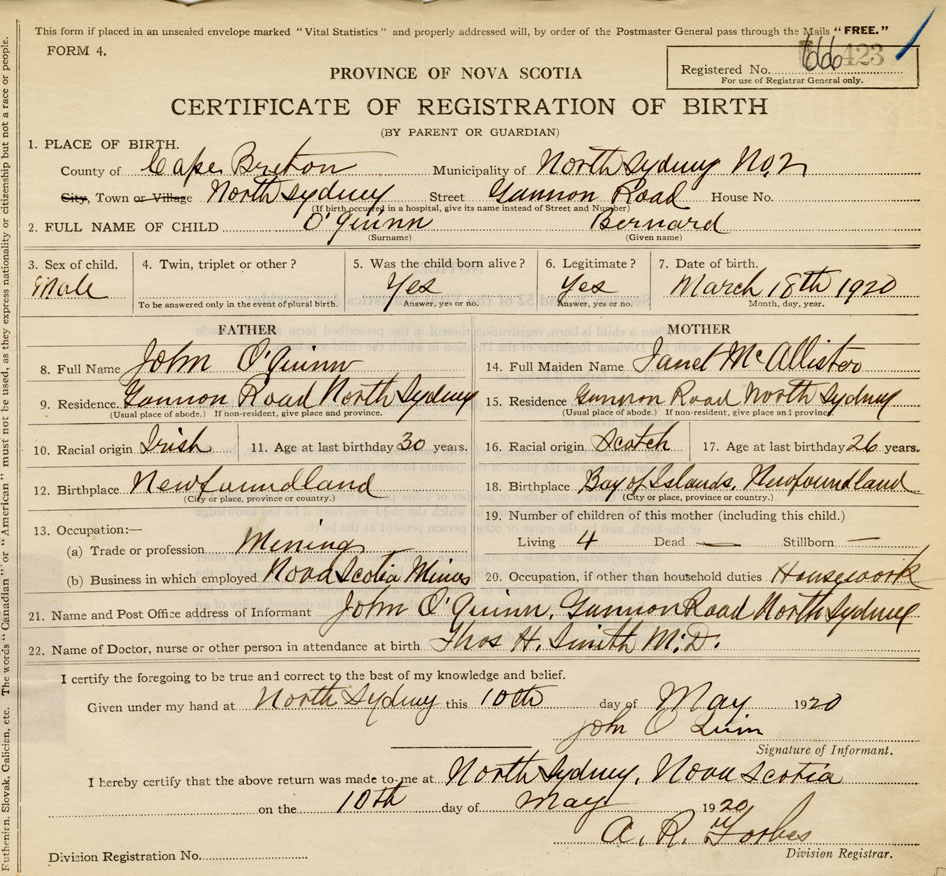 This form if placed in an unsealed envelope marked "Vital Statistics" and properly addressed will, by order of the Postmaster General pass through the Mails "FREE."
FORM 4.
666 423
Registered No.
For use of Registrar General only.
PROVINCE OF NOVA SCOTIA
CERTIFICATE OF REGISTRATION OF BIRTH
(BY PARENT OR GUARDIAN)
1. PLACE OF BIRTH.
County of Cape Breton Municipality of North Sydney No. 2
City, Town or Village North Sydney Street Gannon Road House No.
(If birth occurred in a hospital, give its name instead of Street and Number)
2. FULL NAME OF CHILD O'Quinn Bernard
(Surname) (Given name)
3. Sex of child. 4. Twin, triplet or other? 5. Was the child born alive? 6. Legitimate? 7. Date of birth.
Male Yes Yes March 18th 1920
To be answered only in the event of plural birth. Answer, yes or no. Answer, yes or no. Month, day, year.
FATHER MOTHER
8. Full Name John O'Quinn 14. Full Maiden Name Janet McAllister
9. Residence Gannon Road North Sydney 15. Residence Gannon Road North Sydney
(Usual place of abode.) If non-resident, give place and province. (Usual place of abode.) If non-resident, give place and province.
10. Racial origin Irish 11. Age at last birthday 30 years. 16. Racial origin Scotch 17. Age at last birthday 26 years.
12. Birthplace Newfoundland 18. Birthplace Bay of Islands, Newfoundland
(City or place, province or country.) (City or place, province or country.)
13. Occupation:— 19. Number of children of this mother (including this child.)
(a) Trade or profession Mining Living 4 Dead — Stillborn —
(b) Business in which employed Nova Scotia Mines 20. Occupation, if other than household duties Housework
21. Name and Post Office address of Informant John O'Quinn, Gannon Road North Sydney
22. Name of Doctor, nurse or other person in attendance at birth Thos H. Smith M.D.
I certify the foregoing to be true and correct to the best of my knowledge and belief.
Given under my hand at North Sydney this 10th day of May 1920
John O Quinn
Signature of Informant.
I hereby certify that the above return was made to me at North Sydney, Nova Scotia
on the 10th day of May 1920
A. R. Forbes
Division Registration No. Division Registrar.
Ruthenian, Slovak, Galician, etc. The words "Canadian" or "American" must not be used, as they express nationality or citizenship but not a race or people.